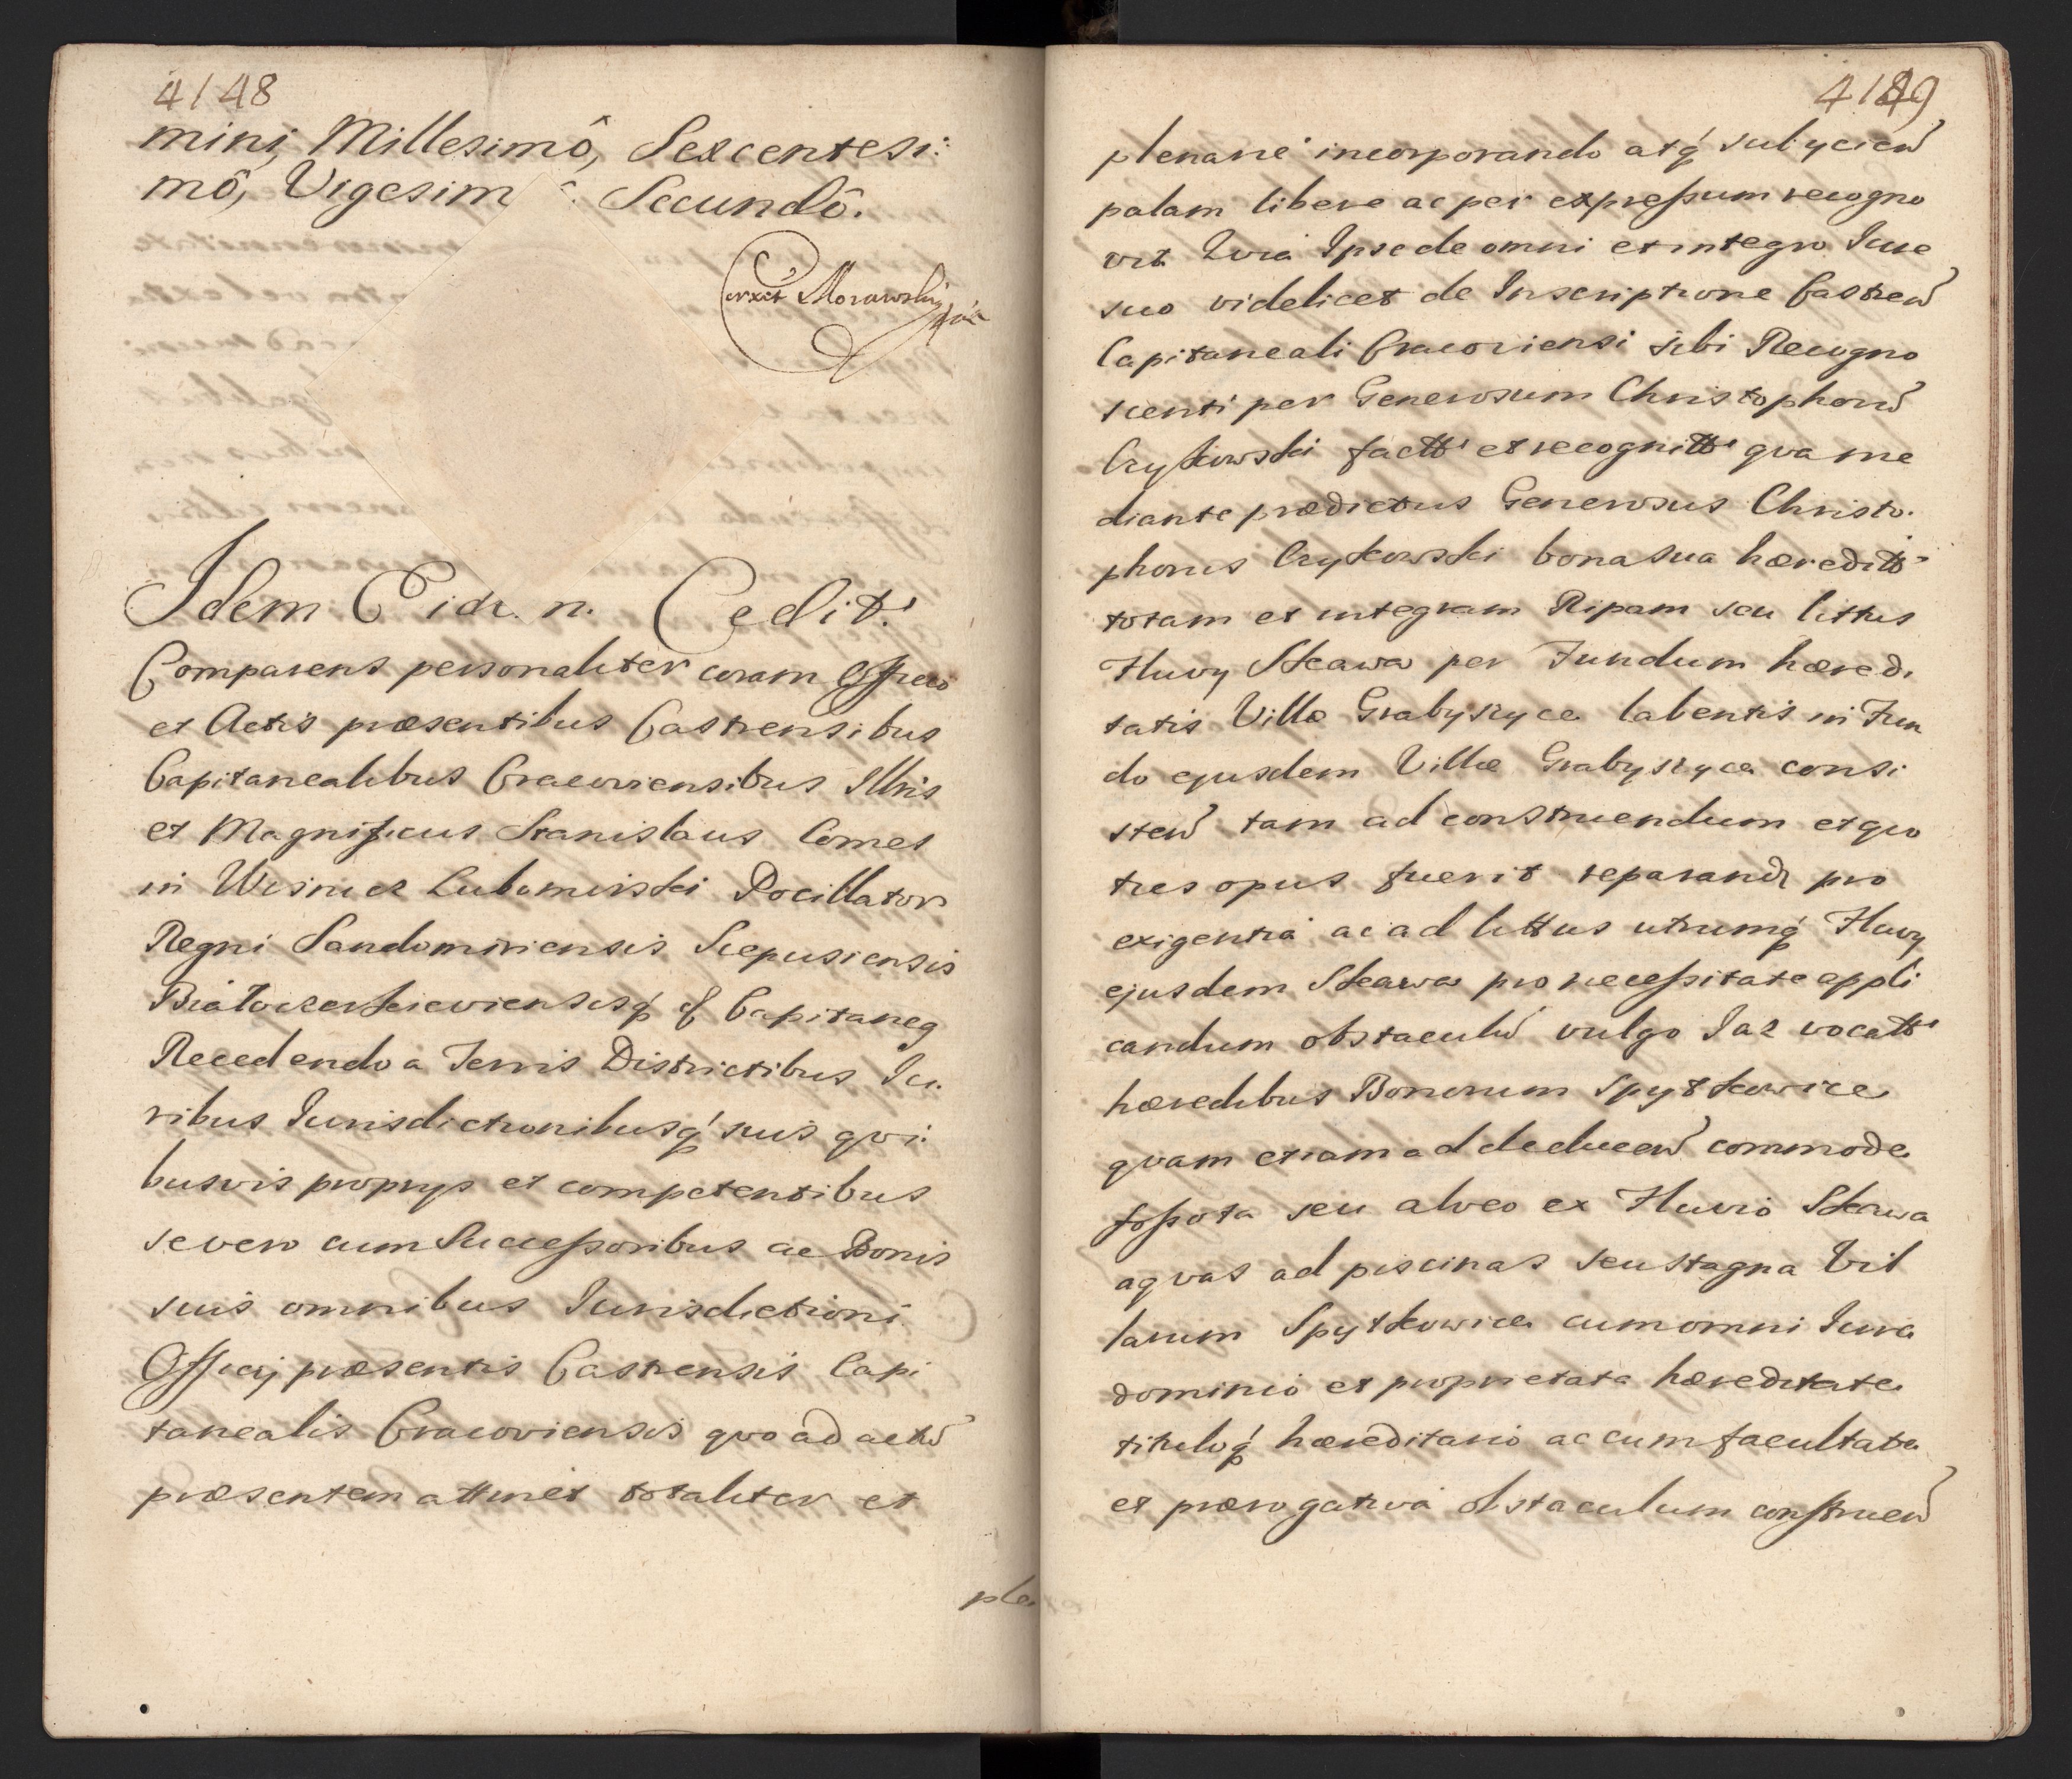 4148
mini, Millesimô, Sexcentesi:
mô, Vigesim Secundô.
Correxit Morawski
Idem Eid. n. Cedit.
Comparens personaliter coram Officio
et Actis præsentibus Castrensibus
Capitanealibus Cracoviensibus Illris
et Magnificus Stanislaus Comes
in Wisnicz Lubomirski Pocillator
Regni Sandomiriensis Scepusiensis
Białocerkieviensisq́ Capitaneg
Recedendo a Terris Districtibus Ju.
ribus Jurisdictionibusq́ suis qvi.
busvis proprys et competentibus
se vero cum Successoribus ac Bonis
suis omnibus Jurisdictioni
Officij præsentis Castrensis Capi
tanealis Cracoviensis qvo ad actũ
præsentem attinet totaliter et
ple
4149
plenarie incorporando atq́ subycien̄
palam libere ac per expressum recogno
vit Qvia Ipse de omni et integro Jure
suo videlicet de Inscriptione Castren̄
Capitaneali Cracoviensi sibi Recogno
scenti per Generosum Christophorũ
Czytkowski factt et recognitt qva me
diante prædictus Generosus Christo.
phorus Czytkowski bona sua hæreditt
totam et integram Ripam seu littus
Fluvy Skawa per Fundum hæredi
tatis Villæ Grabyszyce labentis in Fun
do ejusdem Villæ Grabyszyce consi
sten̄ tam ad construendum et qvo
ties opus fuerit reparand pro
exigentia ac ad littus utrumq́ Fluvy
ejusdem Skawa pro necessitate appli
candum obstaculũ vulgo Jaz vocatt
hæredibus Bonorum Spytkowice
qvam etiam ad deducen̄ commode
fossata seu alveo ex Fluvio Skawa
aqvas ad piscinas seu stagna Vil
larum Spytkowice cum omni Jure
dominio et proprietate hæreditate
tituloq́ hæreditario ac cum facultate
et prærogativa obstaculum construen̄